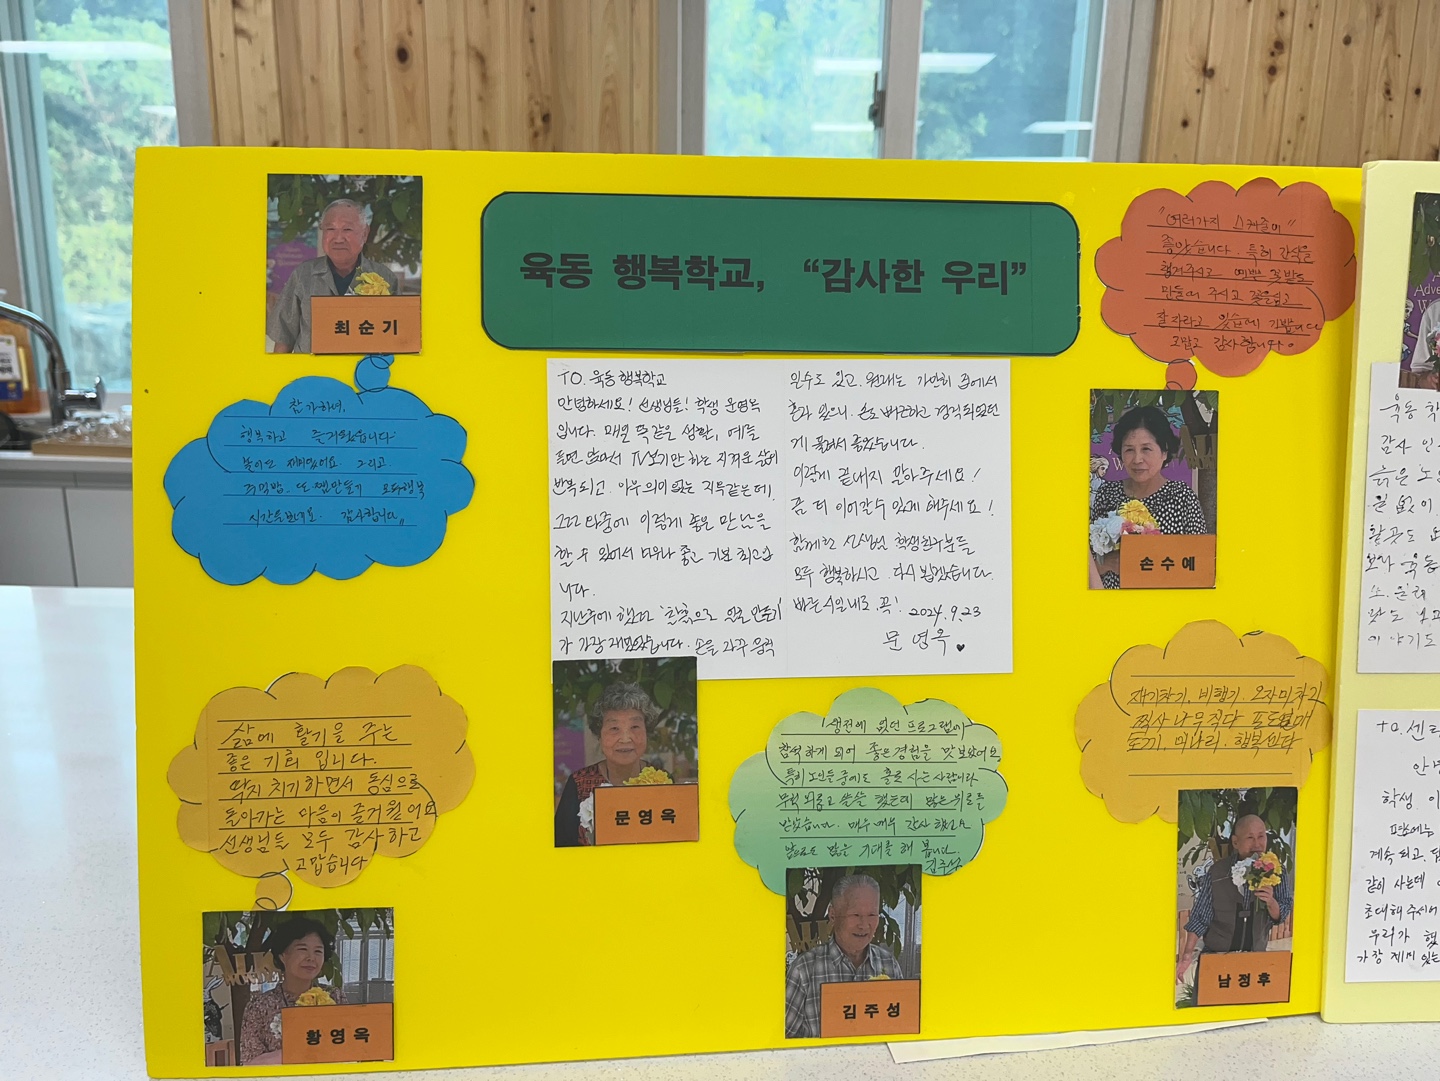 육동 행복학교, “감사한 우리”
최순기
참가하여,
행복하고 즐거웠습니다
놀이도 재미있어요 그리고
주먹밥, 또.쨈만들기 모두행복
시간을보내요. 감사합니다,,
TO. 육동행복학교
안녕하세요! 선생님들! 학생 문영옥
입니다. 매일 똑같은 생활, 예를
들면 앉아서 TV보기만 하는 지겨운 삶이
반복되고, 아무 의미 없는 지루같은데.
그러 다중에 이렇게 좋은 만남을
할 수 있어서 너무나 좋고 기분 최고입
니다.
지난주에 했던 '찰흙으로 만들기'
가 가장 재미있었습니다. 손을 자꾸 움직
일수도 있고. 원래는 가만히 집에서
혼자 있으니. 손도 뻐근하고 경직되었던
게 풀려서 좋았습니다.
이렇게 끝내지 말아주세요!
좀 더 이어갈수 있게 해주세요!
함께한 선생님 학생친구분들
모두 행복하시고 다시 뵙겠습니다.
빠른시일내로. 꼭! 2024.9.23
문영옥 ♥
"여러가지 스케줄이"
좋았습니다. 특히 간식을
챙겨주시고 예쁜 꽃밭도
만들어 주시고 꽃을심고
잘자라고 있습에 기쁩니다
고맙고 감사합니다.
손수예
삶에 활기를 주는
좋은 기회 입니다.
딱지 치기하면서 동심으로
돌아가는 마음이 즐거웠어요
선생님들 모두 감사하고
고맙습니다
황영옥
문영옥
생전에 없던 프로그램이
참석하게 되어 좋은경험을 맛보았어요
특히 노인들 중에도 홀로 사는사람이다
무척 외롭고 쓸쓸 했는데 많은 위로를
받았습니다. 매우매우 감사했어요
앞으로도 많을 기대를 해 봅니다.
김주성
김주성
재기차기, 비행기, 오자미차기
찍사 나무 적다 포도열매
토끼. 미나리. 행복한다
남정후
육동 학
감사 인
늙은 노
일 없이
보다 육동
이야기도
TO.센터
안녕
학생 이
계속 되고.
같이 사는데
초대해 주셔서
우리가 했
가장 재미 있는